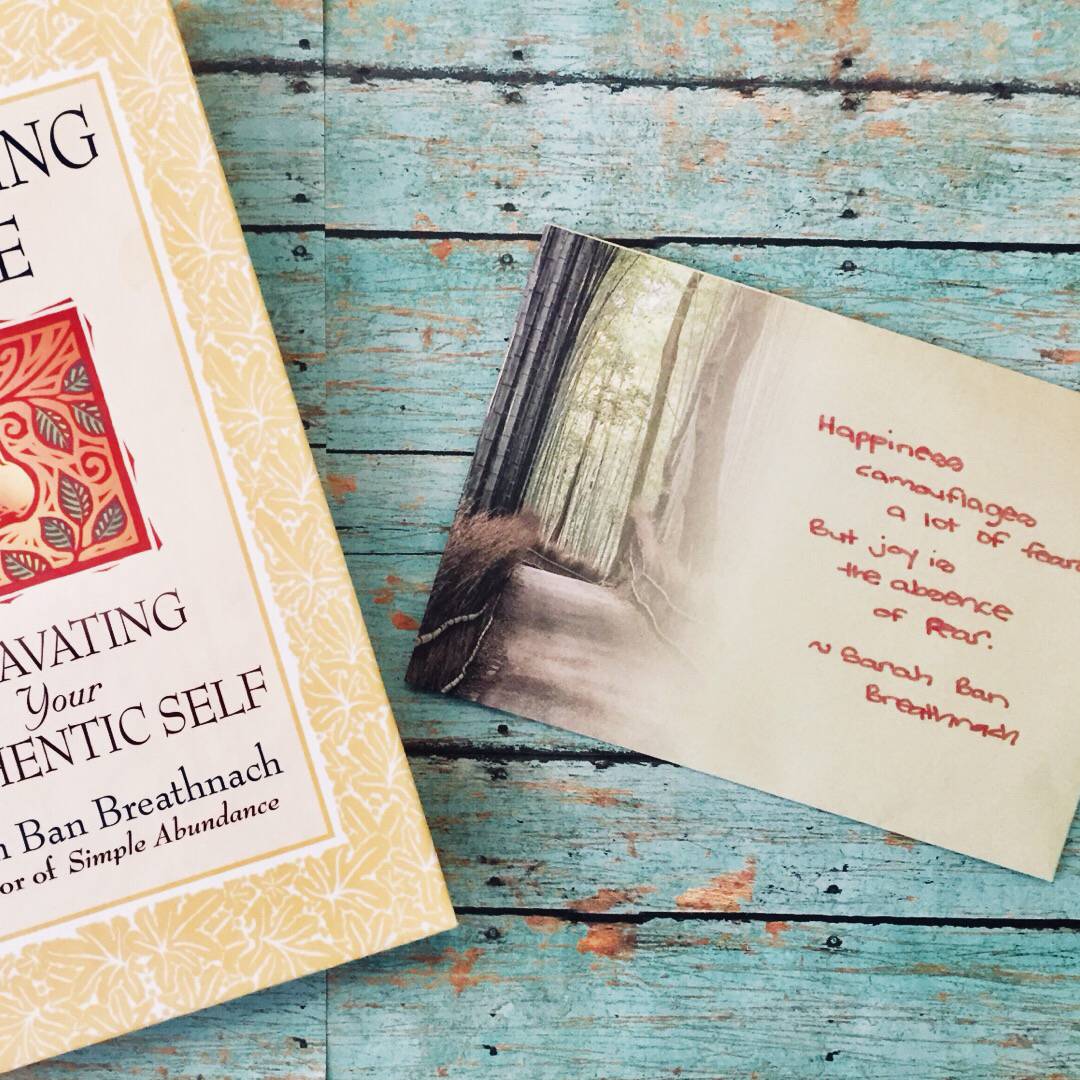 ING
E
AVATING
Your
HENTIC SELF
n Ban Breathnach
or of Simple Abundance
Happiness
camouflages
a lot of fears
But joy is
the absence
of fear.
~ Sarah Ban
Breathnach